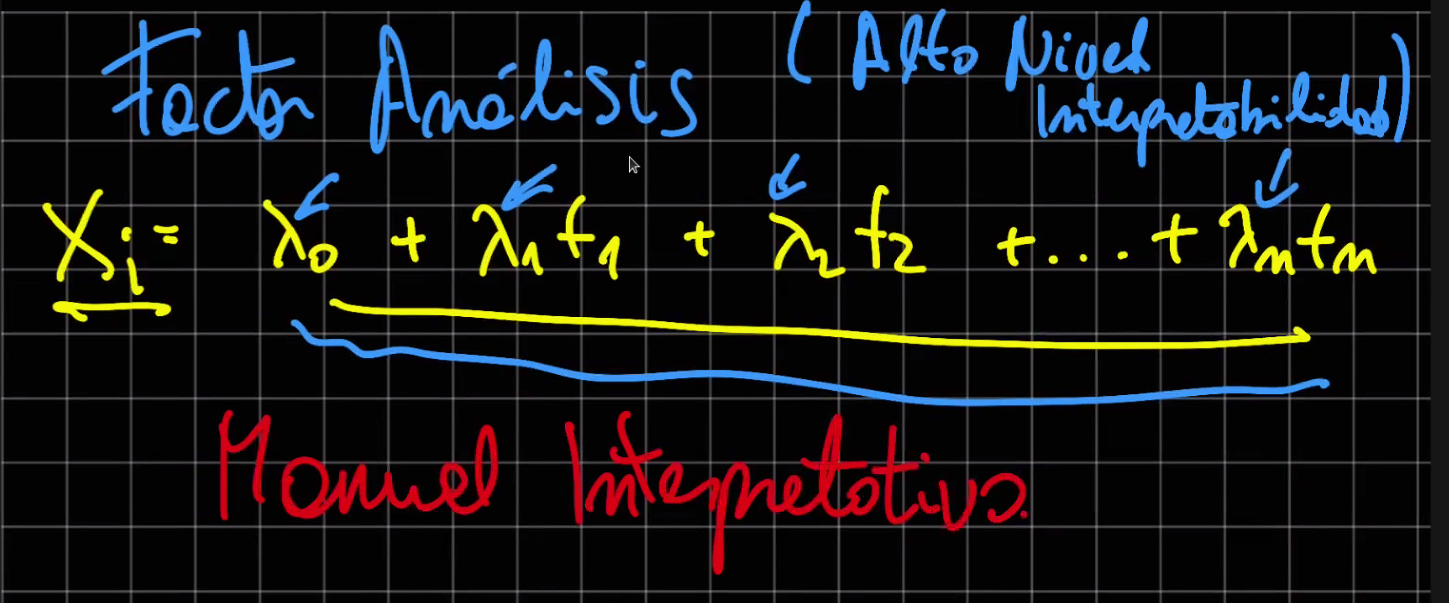 Factor Análisis
(Alto Nivel
Interpretabilidad)
Xi = λ0 + λ1f1 + λ2f2 + ... + λnfn
Manual Interpretativo.